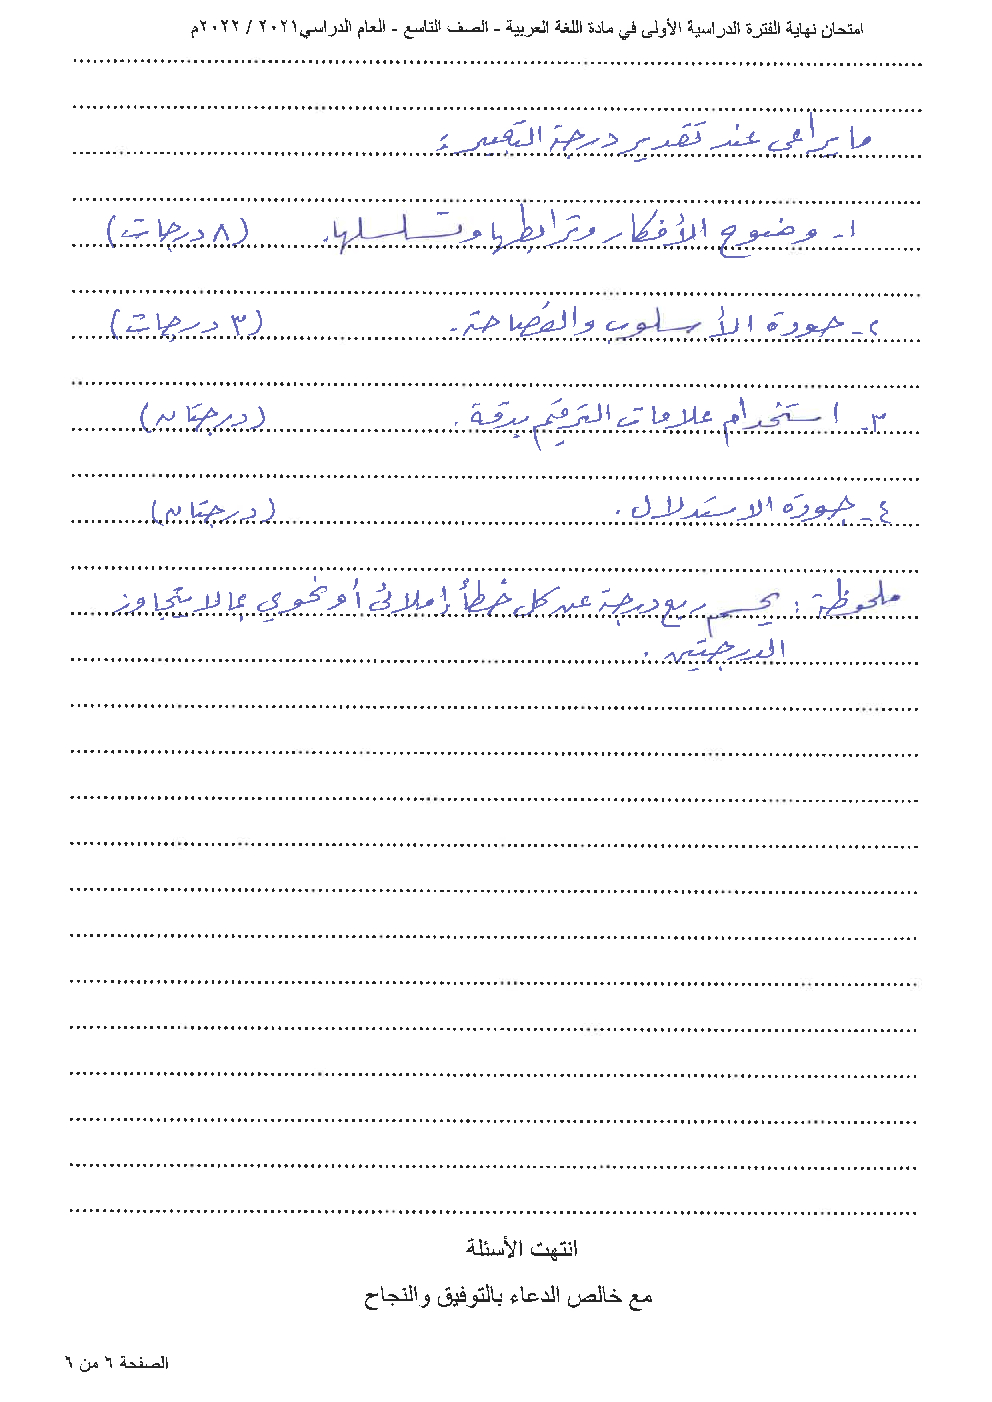 امتحان نهاية الفترة الدراسية الأولى في مادة اللغة العربية - الصف التاسع - العام الدراسي ٢٠٢١ / ٢٠٢٢م
ما يراعى عند تقدير درجة التعبير :
١- وضوح الأفكار وترابطها وتسلسلها. (٨ درجات)
٢- جودة الأسلوب والفصاحة. (٣ درجات)
٣- استخدام علامات الترقيم بدقة. (درجتان)
٤- جودة الاستدلال. (درجتان)
ملحوظة : يحسم ربع درجة عن كل خطأ إملائي أو نحوي بما لا يتجاوز
الدرجتين .
انتهت الأسئلة
مع خالص الدعاء بالتوفيق والنجاح
الصفحة ٦ من ٦